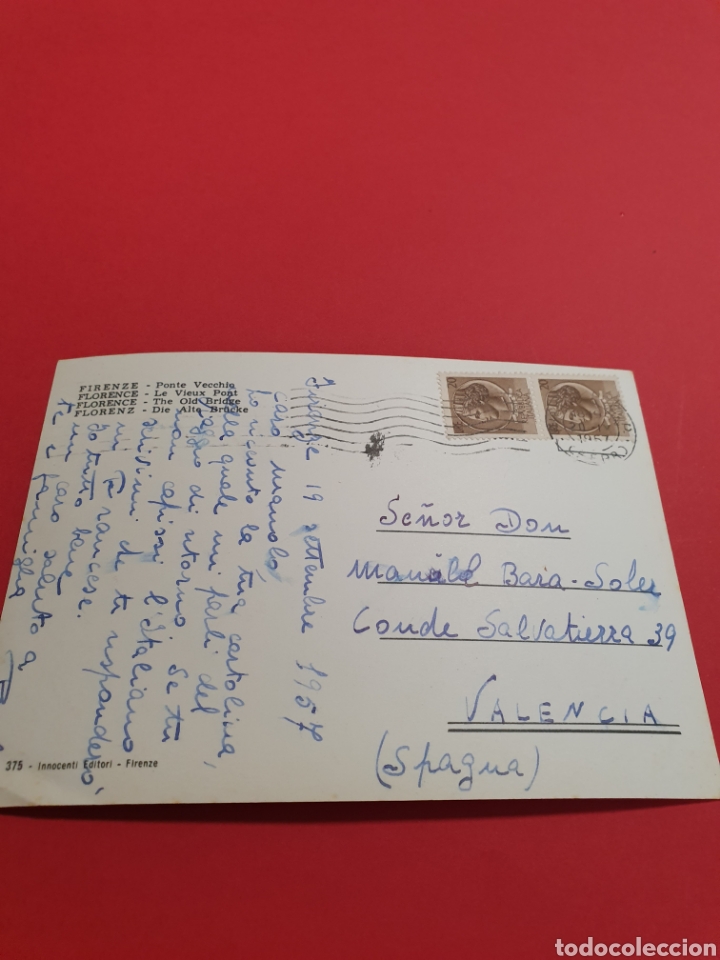 FIRENZE - Ponte Vecchio
FLORENCE - Le Vieux Pont
FLORENCE - The Old Bridge
FLORENZ - Die Alte Brücke
Firenze 19 settembre 1957
caro manolo,
ho ricevuto la tua cartolina,
della quale mi parli del
viaggio di ritorno. Se tu
non capissi l'Italiano
mi de te risponderò,
in Francese.
Io tutto bene
un caro saluto a
te e famiglia
375 - Innocenti Editori - Firenze
20
20
Señor Don
Manuel Bara-Soler
Conde Salvatierra 39
VALENCIA
(Spagna)
todocoleccion